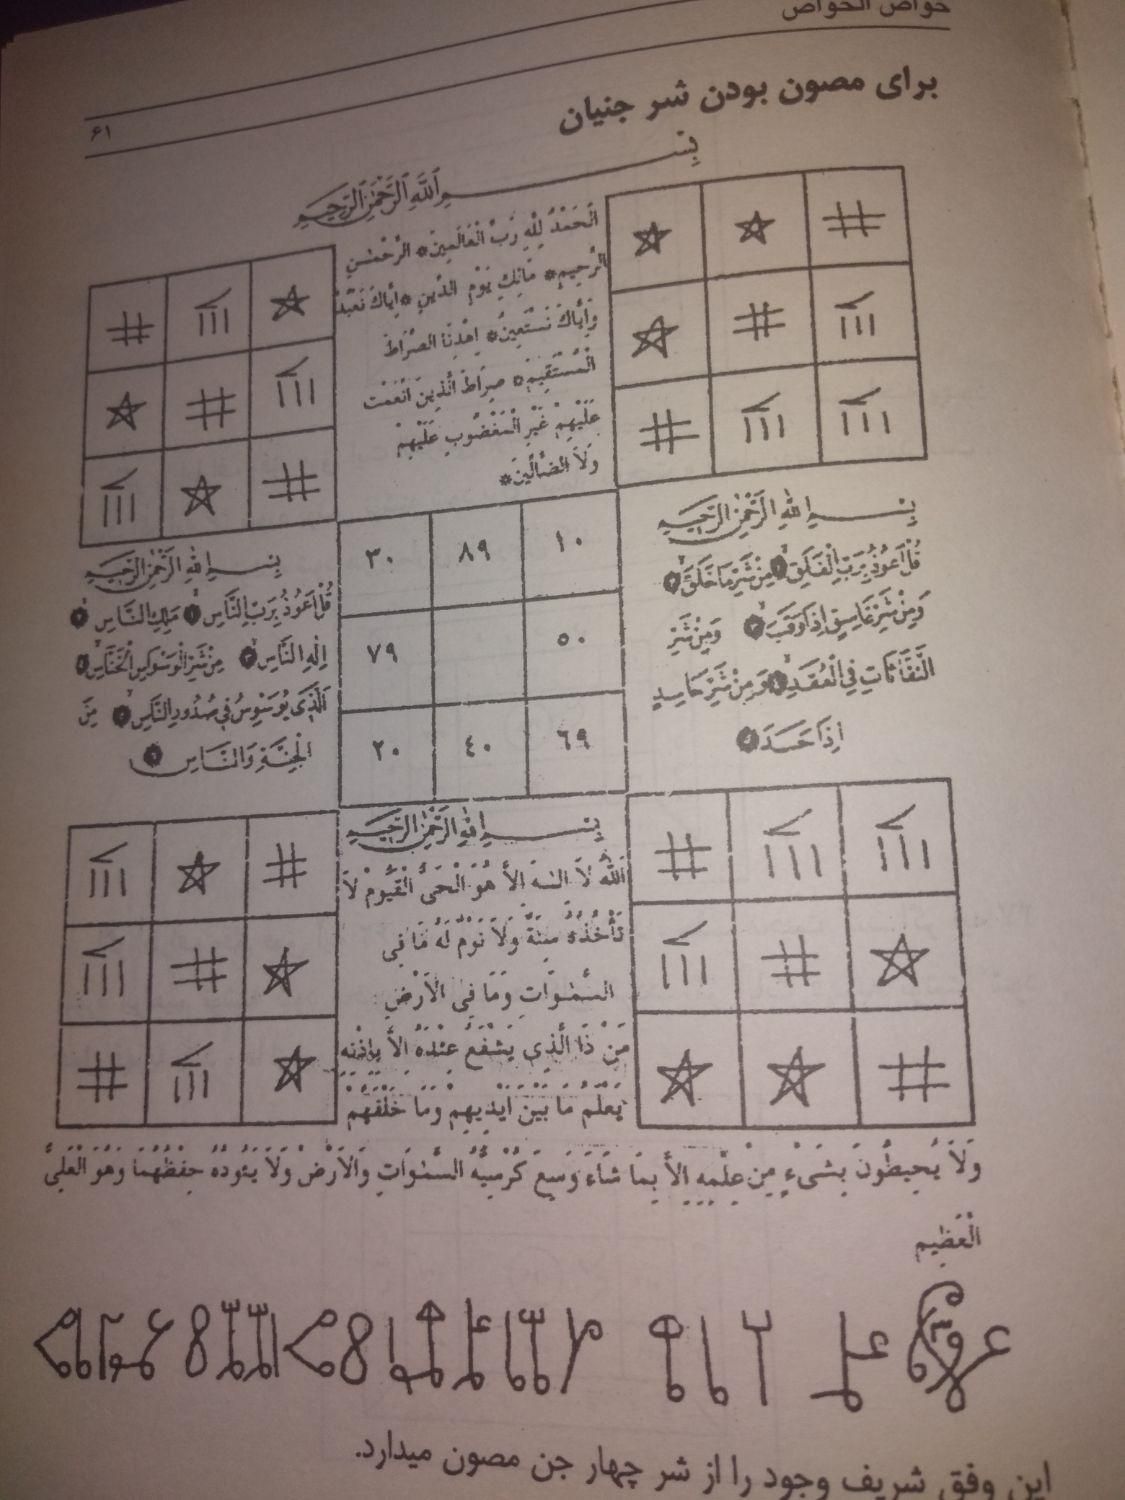 خواص الخواص
۶۱
برای مصون بودن شر جنیان
بِسْمِ اللَّهِ الرَّحْمَٰنِ الرَّحِيمِ
اَلْحَمْدُ لِلّٰهِ رَبِّ الْعَالَمِينَ* الرَّحْمٰنِ
الرَّحِيمِ* مَالِكِ يَوْمِ الدِّينِ* اِيَّاكَ نَعْبُدُ
وَاِيَّاكَ نَسْتَعِينُ* اِهْدِنَا الصِّرَاطَ
الْمُسْتَقِيمَ* صِرَاطَ الَّذِينَ اَنْعَمْتَ
عَلَيْهِمْ غَيْرِ الْمَغْضُوبِ عَلَيْهِمْ
وَلاَ الضَّالِّينَ*
بِسْمِ اللهِ الرَّحْمٰنِ الرَّحِيمِ
قُلْ اَعُوذُ بِرَبِّ الْفَلَقِ ١ مِنْ شَرِّ مَا خَلَقَ ٢
وَمِنْ شَرِّ غَاسِقٍ اِذَا وَقَبَ ٣ وَمِنْ شَرِّ
النَّفَّاثَاتِ فِي الْعُقَدِ ٤ وَمِنْ شَرِّ حَاسِدٍ
اِذَا حَسَدَ ٥
١٠ ٨٩ ٣٠
٥٠ ٧٩
٦٩ ٤٠ ٢٠
بِسْمِ اللهِ الرَّحْمٰنِ الرَّحِيمِ
قُلْ اَعُوذُ بِرَبِّ النَّاسِ ١ مَلِكِ النَّاسِ ٢
اِلٰهِ النَّاسِ ٣ مِنْ شَرِّ الْوَسْوَاسِ الْخَنَّاسِ ٤
اَلَّذِي يُوَسْوِسُ فِي صُدُورِ النَّاسِ ٥ مِنَ
الْجِنَّةِ وَالنَّاسِ ٦
بِسْمِ اللهِ الرَّحْمٰنِ الرَّحِيمِ
اَللّٰهُ لاَ اِلٰهَ اِلاَّ هُوَ الْحَيُّ الْقَيُّومُ لاَ
تَأْخُذُهُ سِنَةٌ وَلاَ نَوْمٌ لَهُ مَا فِي
السَّمٰوَاتِ وَمَا فِي الْاَرْضِ
مَنْ ذَا الَّذِي يَشْفَعُ عِنْدَهُ اِلاَّ بِاِذْنِهِ
يَعْلَمُ مَا بَيْنَ اَيْدِيهِمْ وَمَا خَلْفَهُمْ
وَلاَ يُحِيطُونَ بِشَيْءٍ مِنْ عِلْمِهِ اِلاَّ بِمَا شَاءَ وَسِعَ كُرْسِيُّهُ السَّمٰوَاتِ وَالْاَرْضَ وَلاَ يَئُودُهُ حِفْظُهُمَا وَهُوَ الْعَلِيُّ
الْعَظِيمِ
این وفق شریف وجود را از شر چهار جن مصون میدارد.